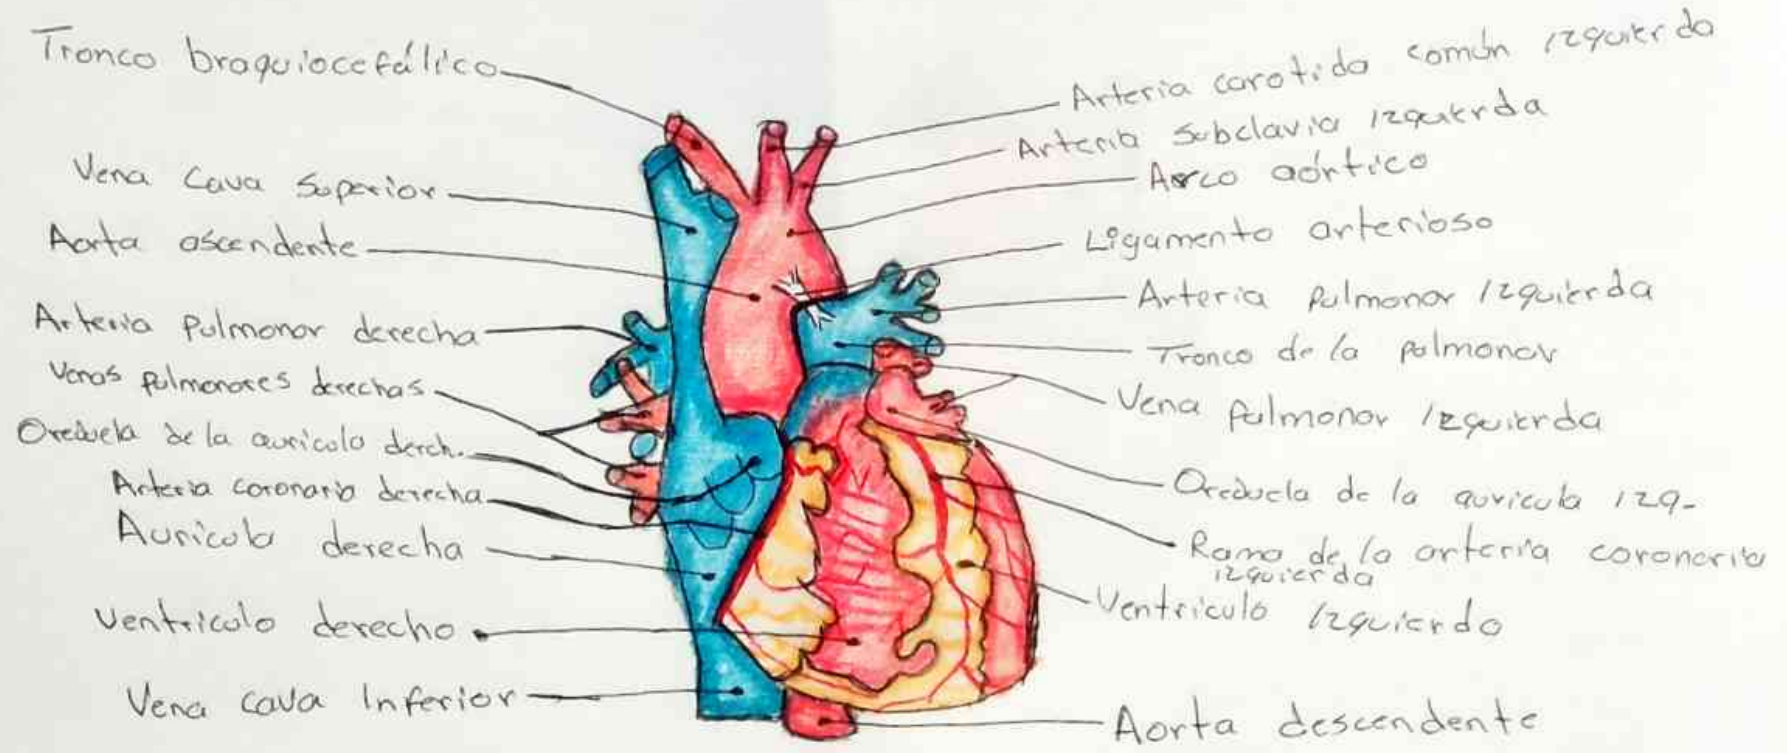 Tronco braquiocefálico
Vena Cava Superior
Aorta ascendente
Arteria Pulmonar derecha
Venas Pulmonares derechas
Orejuela de la auricula derch.
Arteria coronaria derecha
Auricula derecha
Ventriculo derecho
Vena cava Inferior
Arteria carotida común izquierda
Arteria subclavia izquierda
Arco aórtico
Ligamento arterioso
Arteria Pulmonar Izquierda
Tronco de la pulmonar
Vena Pulmonar Izquierda
Orejuela de la auricula izq-
Rama de la arteria coronaria
izquierda
Ventriculo Izquierdo
Aorta descendente